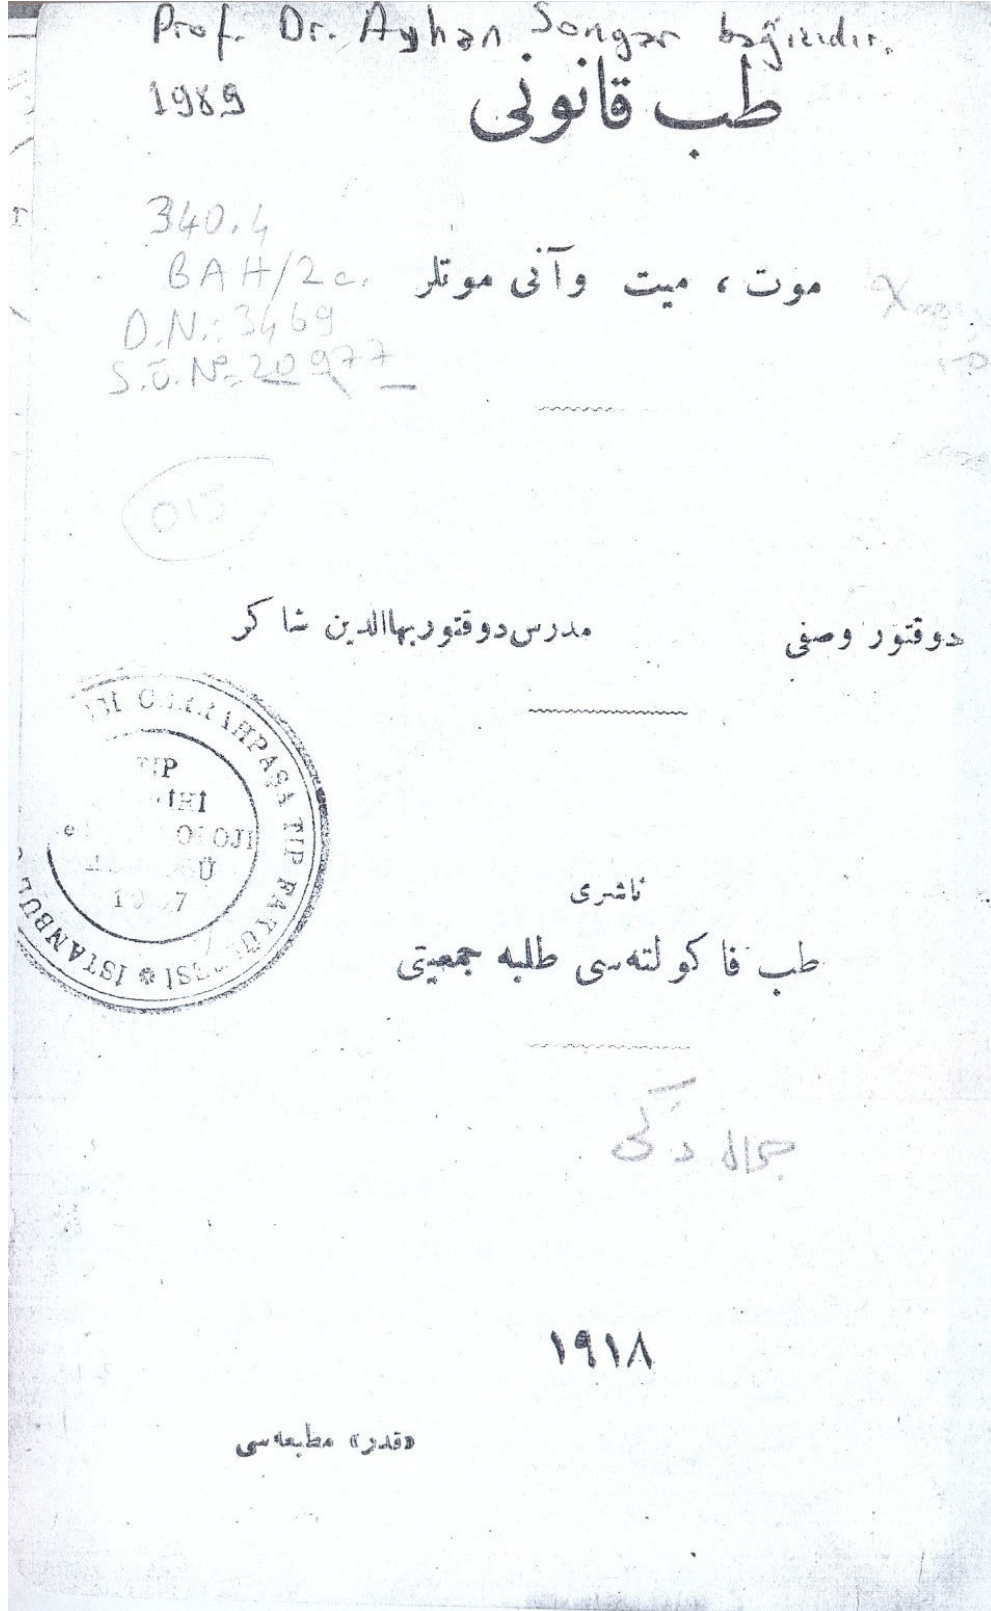 Prof. Dr. Ayhan Songar bağışıdır.
1989
طب قانونی
340.4
BAH/2c.
D.N.: 3469
S.Ö.Nº: 20977
موت ، میت وآنی موتلر
015
دوقتور وصفی
مدرس دوقتور بهاالدین شاکر
CERRAHPAŞA TIP FAKÜLTESİ * İSTANBUL
ناشری
طب فاکولته‌سی طلبه جمعیتی
جمال
١٩١٨
«قدر» مطبعه‌سی